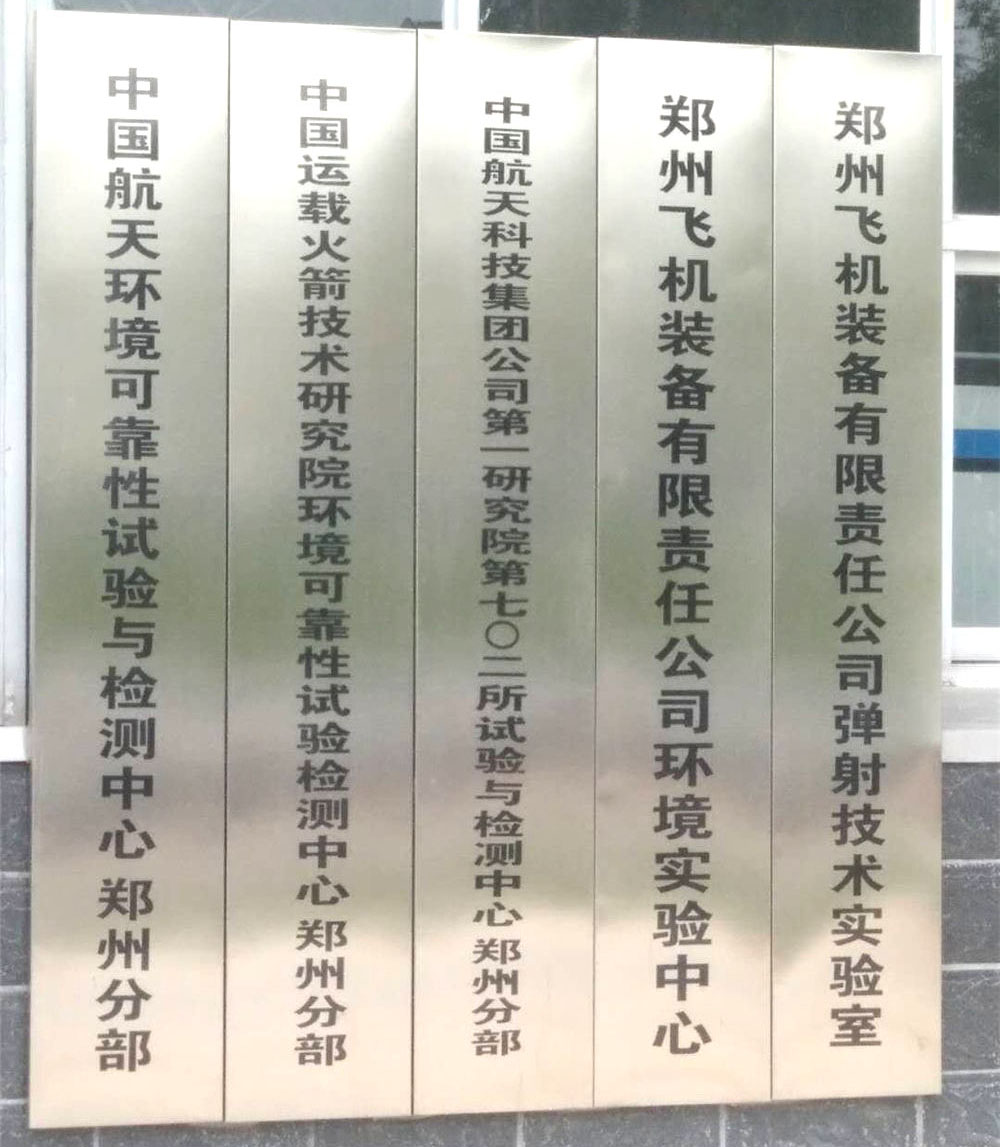 中国航天环境可靠性试验与检测中心 郑州分部
中国运载火箭技术研究院环境可靠性试验检测中心 郑州分部
中国航天科技集团公司第一研究院第七〇二所试验与检测中心 郑州分部
郑州飞机装备有限责任公司环境实验中心
郑州飞机装备有限责任公司弹射技术实验室